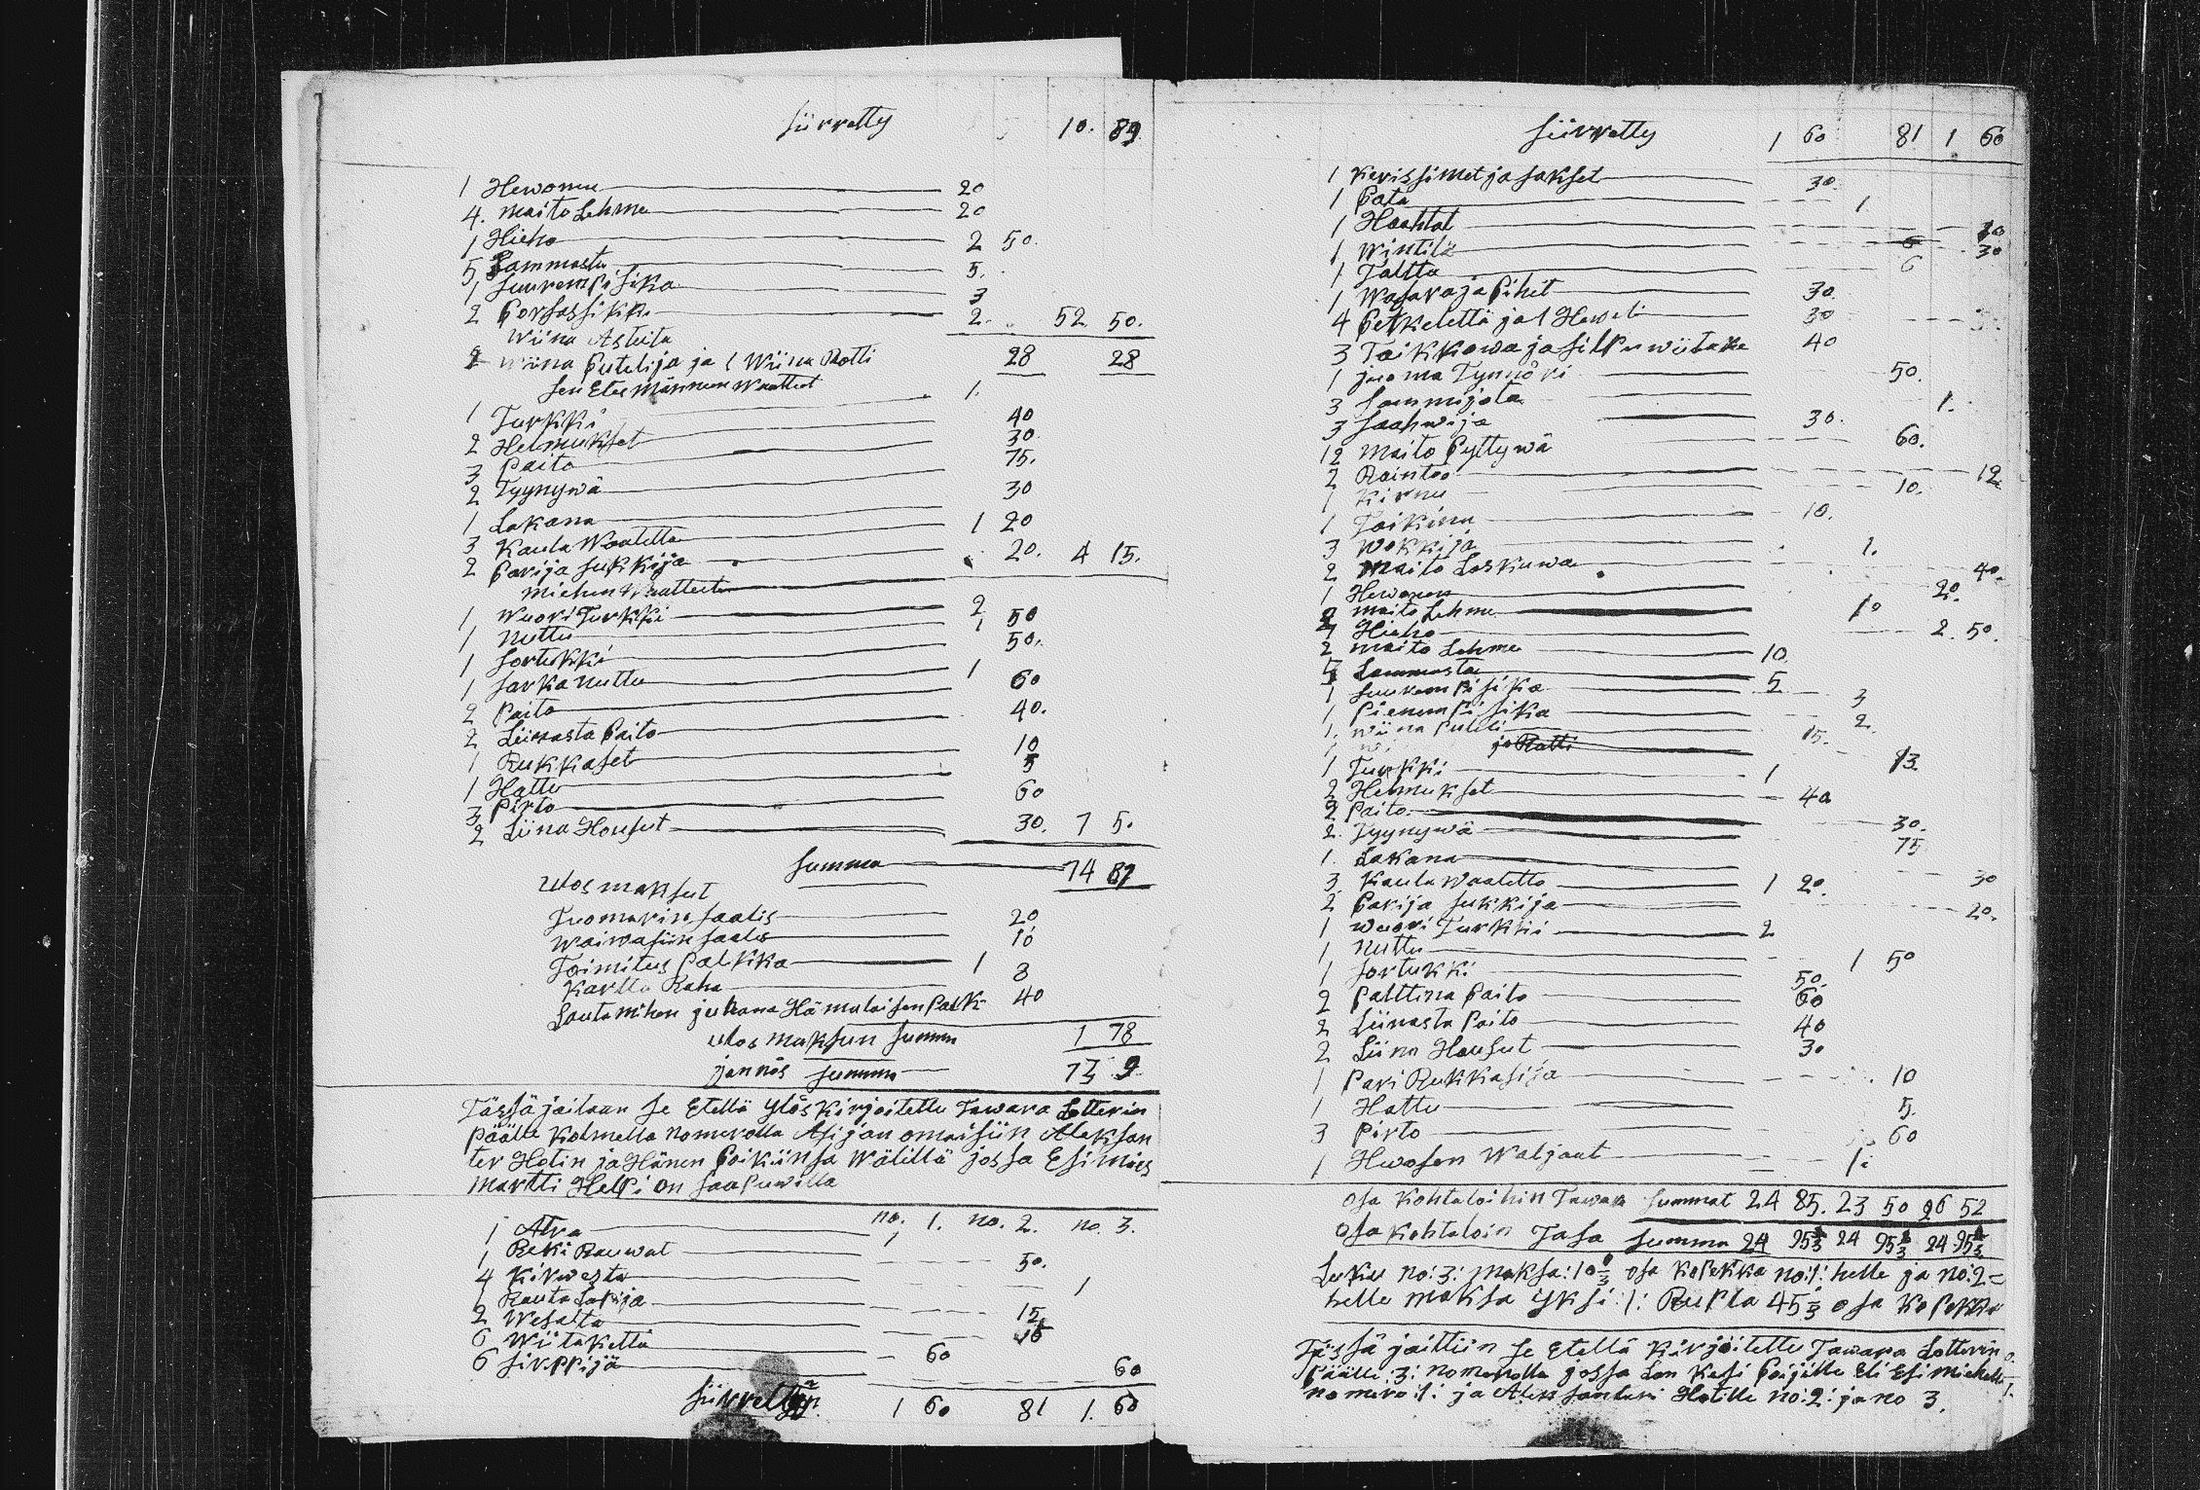 Siirretty 10. 89
1 Hewonen 20
4. maito Lehmä 20
1 Hieho 2 50.
5 Lammasta 5.
1 Suurempi Sika 3
2 Porsassikaa 2. 52 50.
Wiina Asteita
2 wiina Putelija ja 1 Wiina Rotti 28 28
Sen Etes Männeen Waatteet
1 Turkki 1.
2 Helmukset 40
3 Paito 30.
2 Tyynywä 75.
1 Lakana 30
3 Kaula Waatetta 1 20
2 Parija Sukkija 20. 4 15.
miehen Waatteita
1 Wuori Turkki 2
1 Nuttu 1 50
1 Sortukki 50.
1 Sarka nuttu 1
2 Paito 60
2 Liinasta Paito 40.
1 Rukkaset 10
1 Hattu 5
3 Pirto 60
2 Liina Housut 30. 7 5.
Summa 74 87
Ulos maksut
Tuomarin Saatis 20
Waiwasiin Saatis 10
Toimitus Palkka 1
Kartta Raha 8
Lautamihen juhana Hämäläisen Palk 40
Ulos maksun Summa 1 78
jännös Summa 73 9
Tässä jaitaan se Etellä Ylöskirjoitettu Tawara Lotterin
Päälle Kolmella nomerolla Asijan omaisiin Aleksan
ter Hotin ja Hänen Poikiinsa Wälillä jossa Esimies
Martti Helpi on Saapuwilla
no. 1. no. 2. no. 3.
1 Atra 1
1 Reki Rauwat 50.
4 Kirwesta 1
1 Rauta Lapija 15
2 Wesalta 16
6 Wiitaketta 60
6 Sirppijä 60
Siirrettawä 1 60 81 1. 60
Siirretty 1 60 81 1 60
1 Kerissimet ja Sakset 30.
1 Pata 1
1 Haahlat 20
1 Wintilä 30
1 Taltta 6
1 Wasara ja Pihit 30.
4 Petkelettä ja 1 Heweli 30
3 Taikkowa ja Silpu wiitake 40
1 juoma Tynnöri 50.
3 Sammijota 1.
3 Saahwija 30.
12 maito Pyttywä 60.
2 Raintoo 12
1 Kirnu 10.
1 Taikina 10.
3 Wokkija 1.
2 Maito Laskuwa 40.
1 Hewonen 20.
2 maito Lehmä 10
1 Hieho 2. 50.
2 maito Lehmä 10
5 Lammasta 5
1 Suurempi Sika 3
1 Pienempi Sika 2
1. Wiina Puteli 15.
ja Rotti 13
1 Turkki 1
2 Helmukset 40
2 Paito 30.
2 Tyynywä 75
1. Lakana 30
3 Kaula waatetta 1 20.
2 Parija Sukkija 20.
1 Wuori Turkki 2
1 Nuttu 1 50
1 Sortukki 50.
2 Palttina Paito 60
2 Liinasta Paito 40
2 Liina Housut 30
1 Pari Rukkasija 10
1 Hattu 5.
3 Pirto 60
1 Hewosen Waljaat 1:
Osa Kohtaloihin Tawara Summat 24 85. 23 50 26 52
Osa Kohtaloin Tasa Summa 24 95⅔ 24 95⅔ 24 95⅔
Luku no:3: maksa: 10 ⅔ osa Kopekka no:1: helle ja no:2=
helle maksa Yksi :1: Rupla 45⅔ osa Kopekka
Tässä jaittiin se Etellä Kirjoitettu Tawara Lotterin
Päälle :3: nomerolla jossa Lon Kesi Poijille Eli Esimiehelle
nomero :1: ja Aleksanteri Hotille no:2: ja no 3.